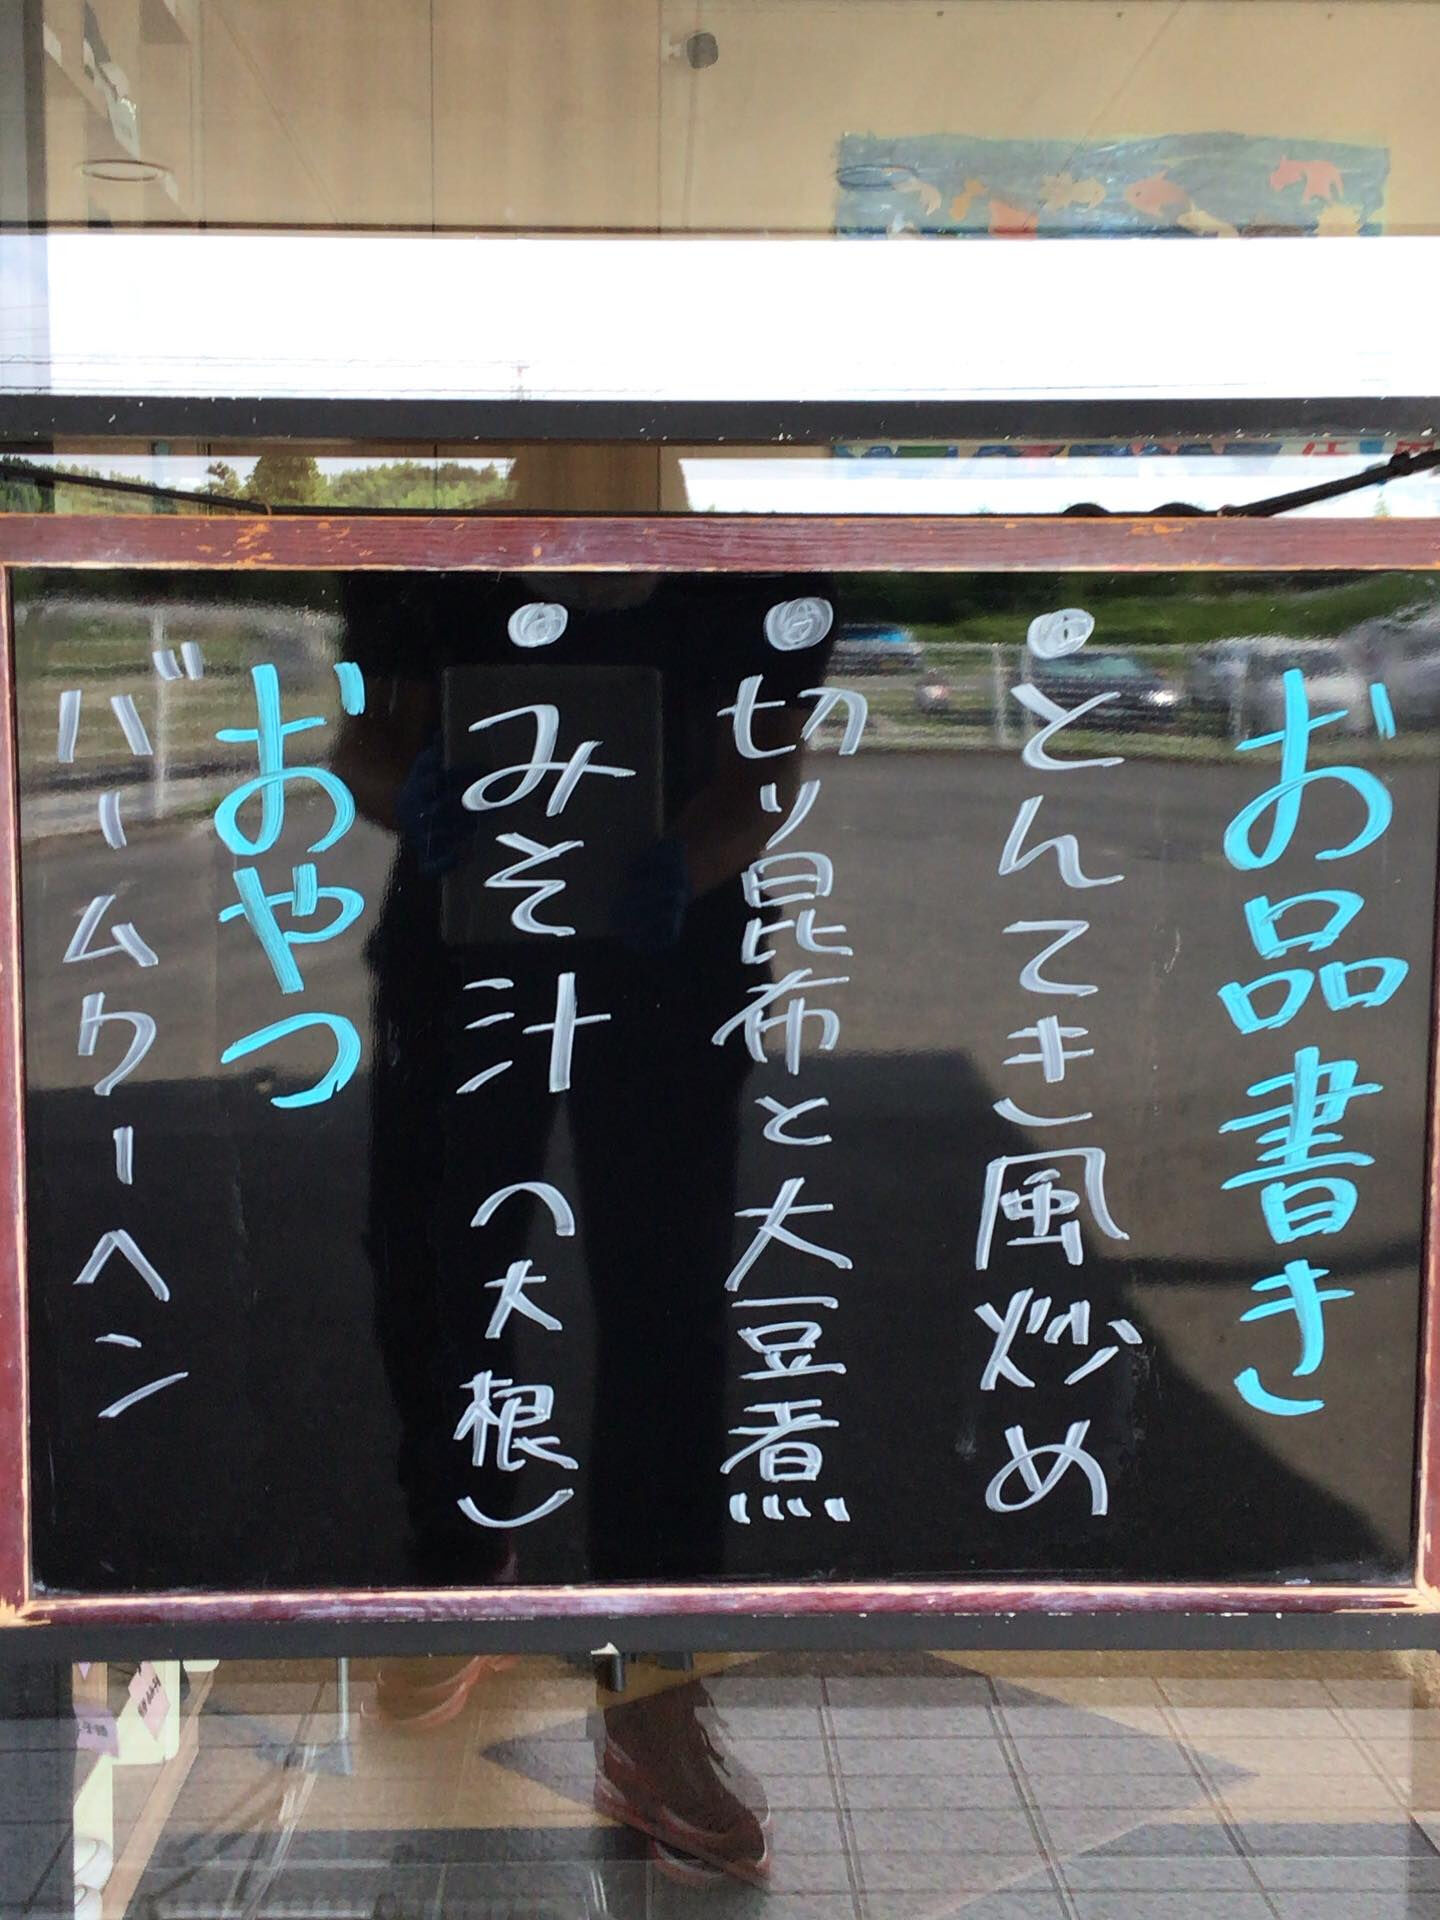 お品書き
とんてき風炒め
切り昆布と大豆煮
みそ汁(大根)
おやつ
バームクーヘン